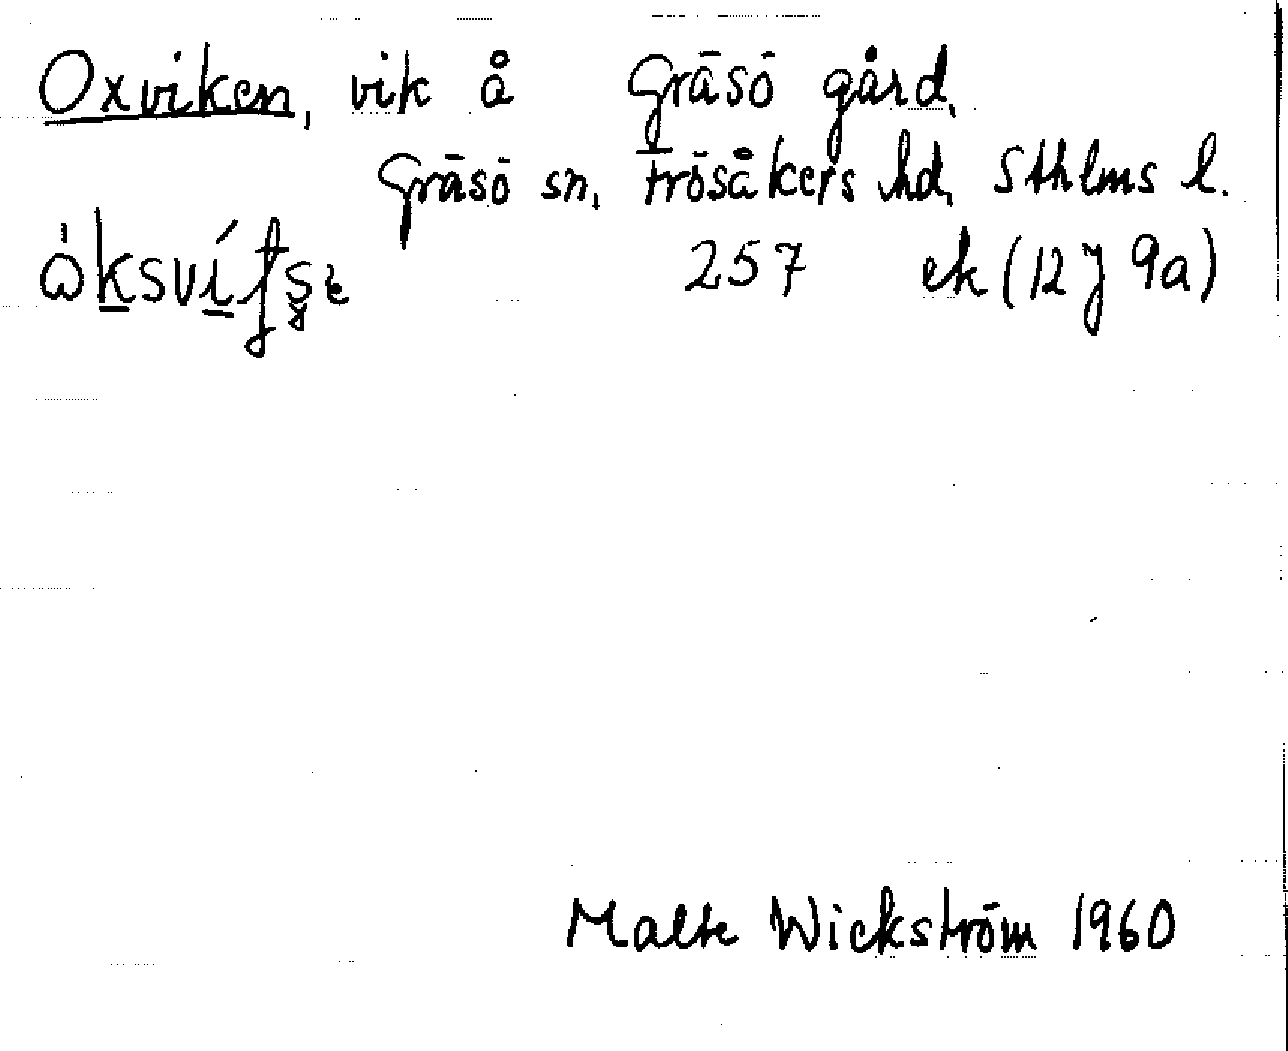 Oxviken, vik å Gräsö gård,
Gräsö sn, Frösåkers hd, Sthlms l.
257 ek (12J 9a)
Malte Wickström 1960